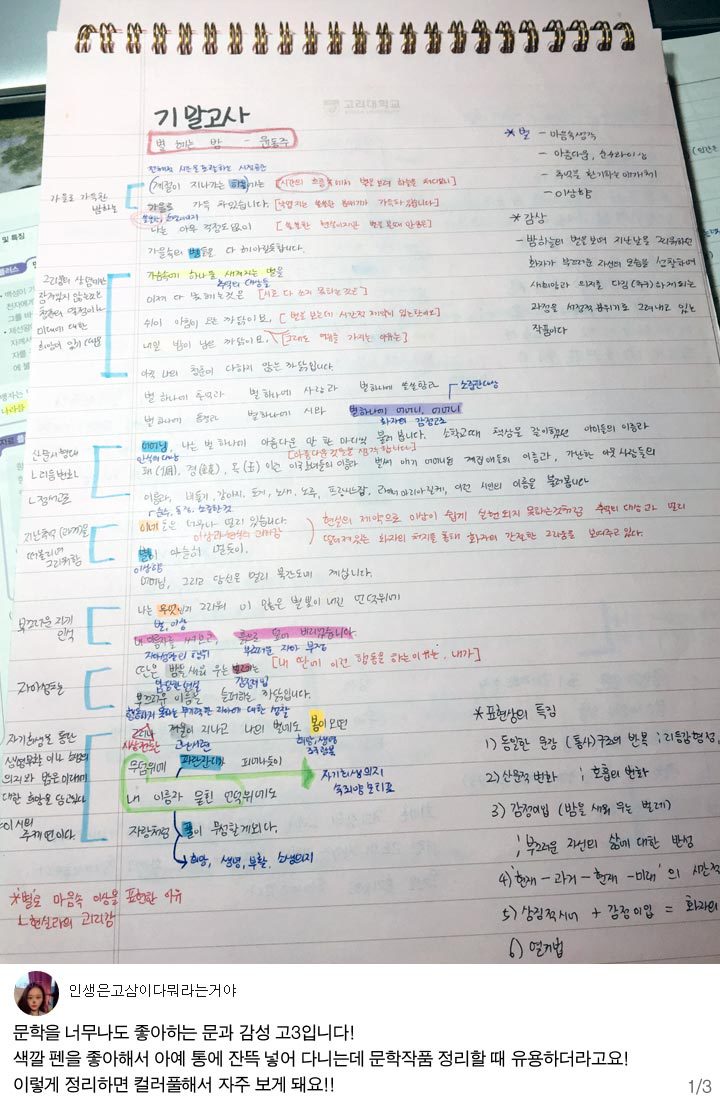 고려대학교
기말고사
별 헤는 밤 - 윤동주
(계절이 지나가는 하늘)에는 [시간의 흐름
가을로 가득 차있습니다.
가을로 가득한
밤하늘
나는 아무 걱정도 없이
가을속의 별들을 다 헤아릴듯합니다.
가슴속에 하나둘 새겨지는 별을
추억의 대상들
이제 다 못헤는것은 [서로 다 쓰지 못하는것은]
쉬이 아침이 오는 까닭이오,
내일 밤이 남은 까닭이오,
아직 나의 청춘이 다하지 않은 까닭입니다.
별 하나에 추억과 별 하나에 사랑과 별하나에 쓸쓸함과
별 하나에 동경과 별하나에 시와 별하나에 어머니, 어머니
소중한 대상
화자의 감정고조
어머님, 나는 별 하나에 아름다운 말 한 마디씩 불러 봅니다. 소학교때 책상을 같이했던 아이들의 이름과
패(佩), 경(鏡), 옥(玉) 이런 이국소녀들의 이름과 벌써 애기 어머니된 계집애들의 이름과, 가난한 이웃 사람들의
이름과, 비둘기, 강아지, 토끼, 노새, 노루, 프랑시스잠, 라이너마리아릴케, 이런 시인의 이름을 불러봅니다
산문시형태
ㄴ리듬변화
ㄴ정서고조
이네들은 너무나 멀리 있습니다.
이상과 현실의 괴리감
별이 아슬히 멀듯이,
이상향
어머님, 그리고 당신은 멀리 북간도에 계십니다.
지난추억(과거)을
떠올리며
그리워함
현실의 제약으로 이상이 쉽게 실현되지 못하는것처럼 추억의 대상과 멀리
떨어져있는 화자의 처지를 통해 화자의 간절한 그리움을 보여주고 있다.
나는 무엇인지 그리워 이 많은 별빛이 내린 언덕위에
별, 이상
내 이름자를 써보고, 흙으로 덮어 버리었습니다.
자아성찰의 행위 부끄러운 자아 부정
부끄러운 자기
인식
딴은 밤을 새워 우는 벌레는 [내 딴에 이런 행동을 하는 이유는, 내가]
감정이입
부끄러운 이름을 슬퍼하는 까닭입니다.
자아성찰
그러나 겨울이 지나고 나의 별에도 봄이 오면
시상전환 고난시련 희망, 생명
조국광복
무덤위에 파란잔디가 피어나듯이
내 이름자 묻힌 언덕위에도
자기희생의지
속죄양모티프
자랑처럼 풀이 무성할게외다.
희망, 생명, 부활, 소생의지
자기희생을 통한
생명부활 이나 희망의
의지와 밝은 미래에
대한 희망을 담고있다
이 시의
주제연이다.
*'별'로 마음속 이상을 표현한 이유
ㄴ현실과의 괴리감
*별 - 마음속생각
- 아름다움, 순수와이상
- 추억을 환기하는 매개체
- 이상향
*감상
- 밤하늘의 별을 보며 지난날을 그리워하던
화자가 부끄러운 자신의 모습을 성찰하며
자기희망과 의지를 다짐
과정을 서정적 분위기로 그려내고 있는
작품이다
*표현상의 특징
1) 동일한 문장(통사)구조의 반복 ; 리듬감형성,
2) 산문적 변화 ; 호흡의 변화
3) 감정이입 (밤을 새워 우는 벌레)
; 부끄러운 자신의 삶에 대한 반성
4) '현재-과거-현재-미래'의 시간적
5) 상징적시어 + 감정이입 = 화자의
6) 열거법
인생은고삼이다뭐라는거야
문학을 너무나도 좋아하는 문과 감성 고3입니다!
색깔 펜을 좋아해서 아예 통에 잔뜩 넣어 다니는데 문학작품 정리할 때 유용하더라고요!
이렇게 정리하면 컬러풀해서 자주 보게 돼요!!
1/3